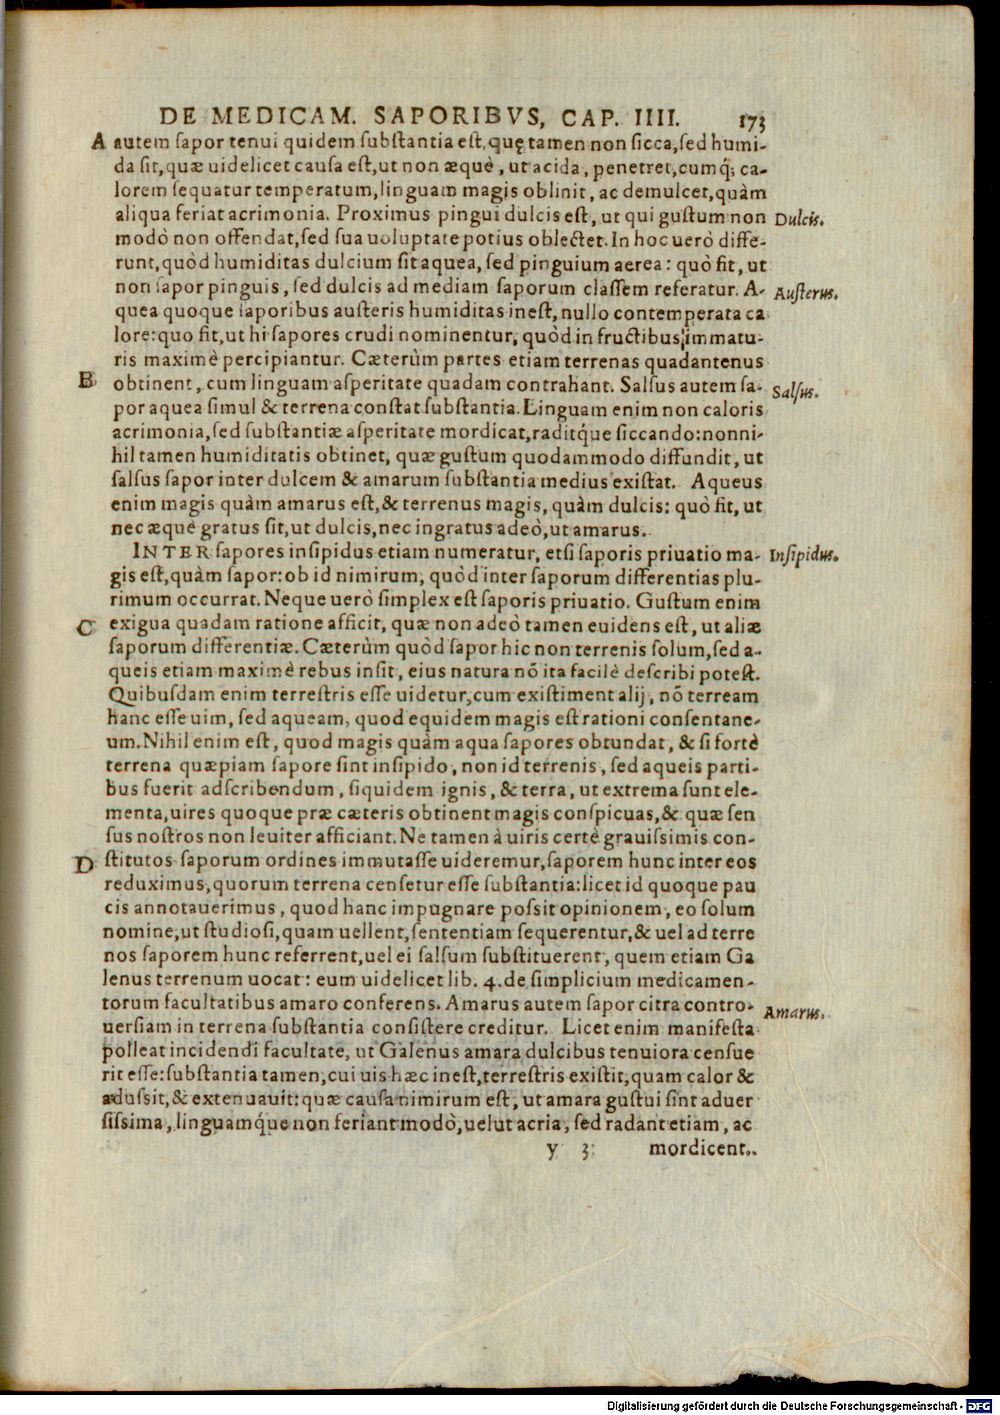 DE MEDICAM. SAPORIBVS, CAP. IIII. 173
A autem sapor tenui quidem substantia est, quę tamen non sicca, sed humi-
da sit, quæ uidelicet causa est, ut non æquè, ut acida, penetret, cumq́; ca-
lorem sequatur temperatum, linguam magis oblinit, ac demulcet, quàm
aliqua feriat acrimonia. Proximus pingui dulcis est, ut qui gustum non
Dulcis.
modò non offendat, sed sua uoluptate potius oblectet. In hoc uerò diffe-
runt, quòd humiditas dulcium sit aquea, sed pinguium aerea: quò fit, ut
non sapor pinguis, sed dulcis ad mediam saporum classem referatur. A-
Austerus.
quea quoque saporibus austeris humiditas inest, nullo contemperata ca
lore: quo fit, ut hi sapores crudi nominentur, quòd in fructibus immatu-
ris maximè percipiantur. Cæterùm partes etiam terrenas quadantenus
B obtinent, cum linguam asperitate quadam contrahant. Salsus autem sa-
Salsus.
por aquea simul & terrena constat substantia. Linguam enim non caloris
acrimonia, sed substantiæ asperitate mordicat, raditq́ue siccando: nonni-
hil tamen humiditatis obtinet, quæ gustum quodammodo diffundit, ut
salsus sapor inter dulcem & amarum substantia medius existat. Aqueus
enim magis quàm amarus est, & terrenus magis, quàm dulcis: quò fit, ut
nec æquè gratus sit, ut dulcis, nec ingratus adeò, ut amarus.
INTER sapores insipidus etiam numeratur, etsi saporis priuatio ma-
Insipidus.
gis est, quàm sapor: ob id nimirum, quòd inter saporum differentias plu-
rimum occurrat. Neque uerò simplex est saporis priuatio. Gustum enim
C exigua quadam ratione afficit, quæ non adeò tamen euidens est, ut aliæ
saporum differentiæ. Cæterùm quòd sapor hic non terrenis solum, sed a-
queis etiam maximè rebus insit, eius natura nō ita facilè describi potest.
Quibusdam enim terrestris esse uidetur, cum existiment alij, nō terream
hanc esse uim, sed aqueam, quod equidem magis est rationi consentane-
um. Nihil enim est, quod magis quàm aqua sapores obtundat, & si fortè
terrena quæpiam sapore sint insipido, non id terrenis, sed aqueis parti-
bus fuerit adscribendum, siquidem ignis, & terra, ut extrema sunt ele-
menta, uires quoque præ cæteris obtinent magis conspicuas, & quæ sen
sus nostros non leuiter afficiant. Ne tamen à uiris certè grauissimis con-
D stitutos saporum ordines immutasse uideremur, saporem hunc inter eos
reduximus, quorum terrena censetur esse substantia: licet id quoque pau
cis annotauerimus, quod hanc impugnare possit opinionem, eo solum
nomine, ut studiosi, quam uellent, sententiam sequerentur, & uel ad terre
nos saporem hunc referrent, uel ei salsum substituerent, quem etiam Ga
lenus terrenum uocat: eum uidelicet lib. 4. de simplicium medicamen-
torum facultatibus amaro conferens. Amarus autem sapor citra contro-
Amarus.
uersiam in terrena substantia consistere creditur. Licet enim manifesta
polleat incidendi facultate, ut Galenus amara dulcibus tenuiora censue
rit esse: substantia tamen, cui uis hæc inest, terrestris existit, quam calor &
adussit, & extenuauit: quæ causa nimirum est, ut amara gustui sint aduer
sissima, linguamq́ue non feriant modò, uelut acria, sed radant etiam, ac
y 3 mordicent.
Digitalisierung gefördert durch die Deutsche Forschungsgemeinschaft - DFG